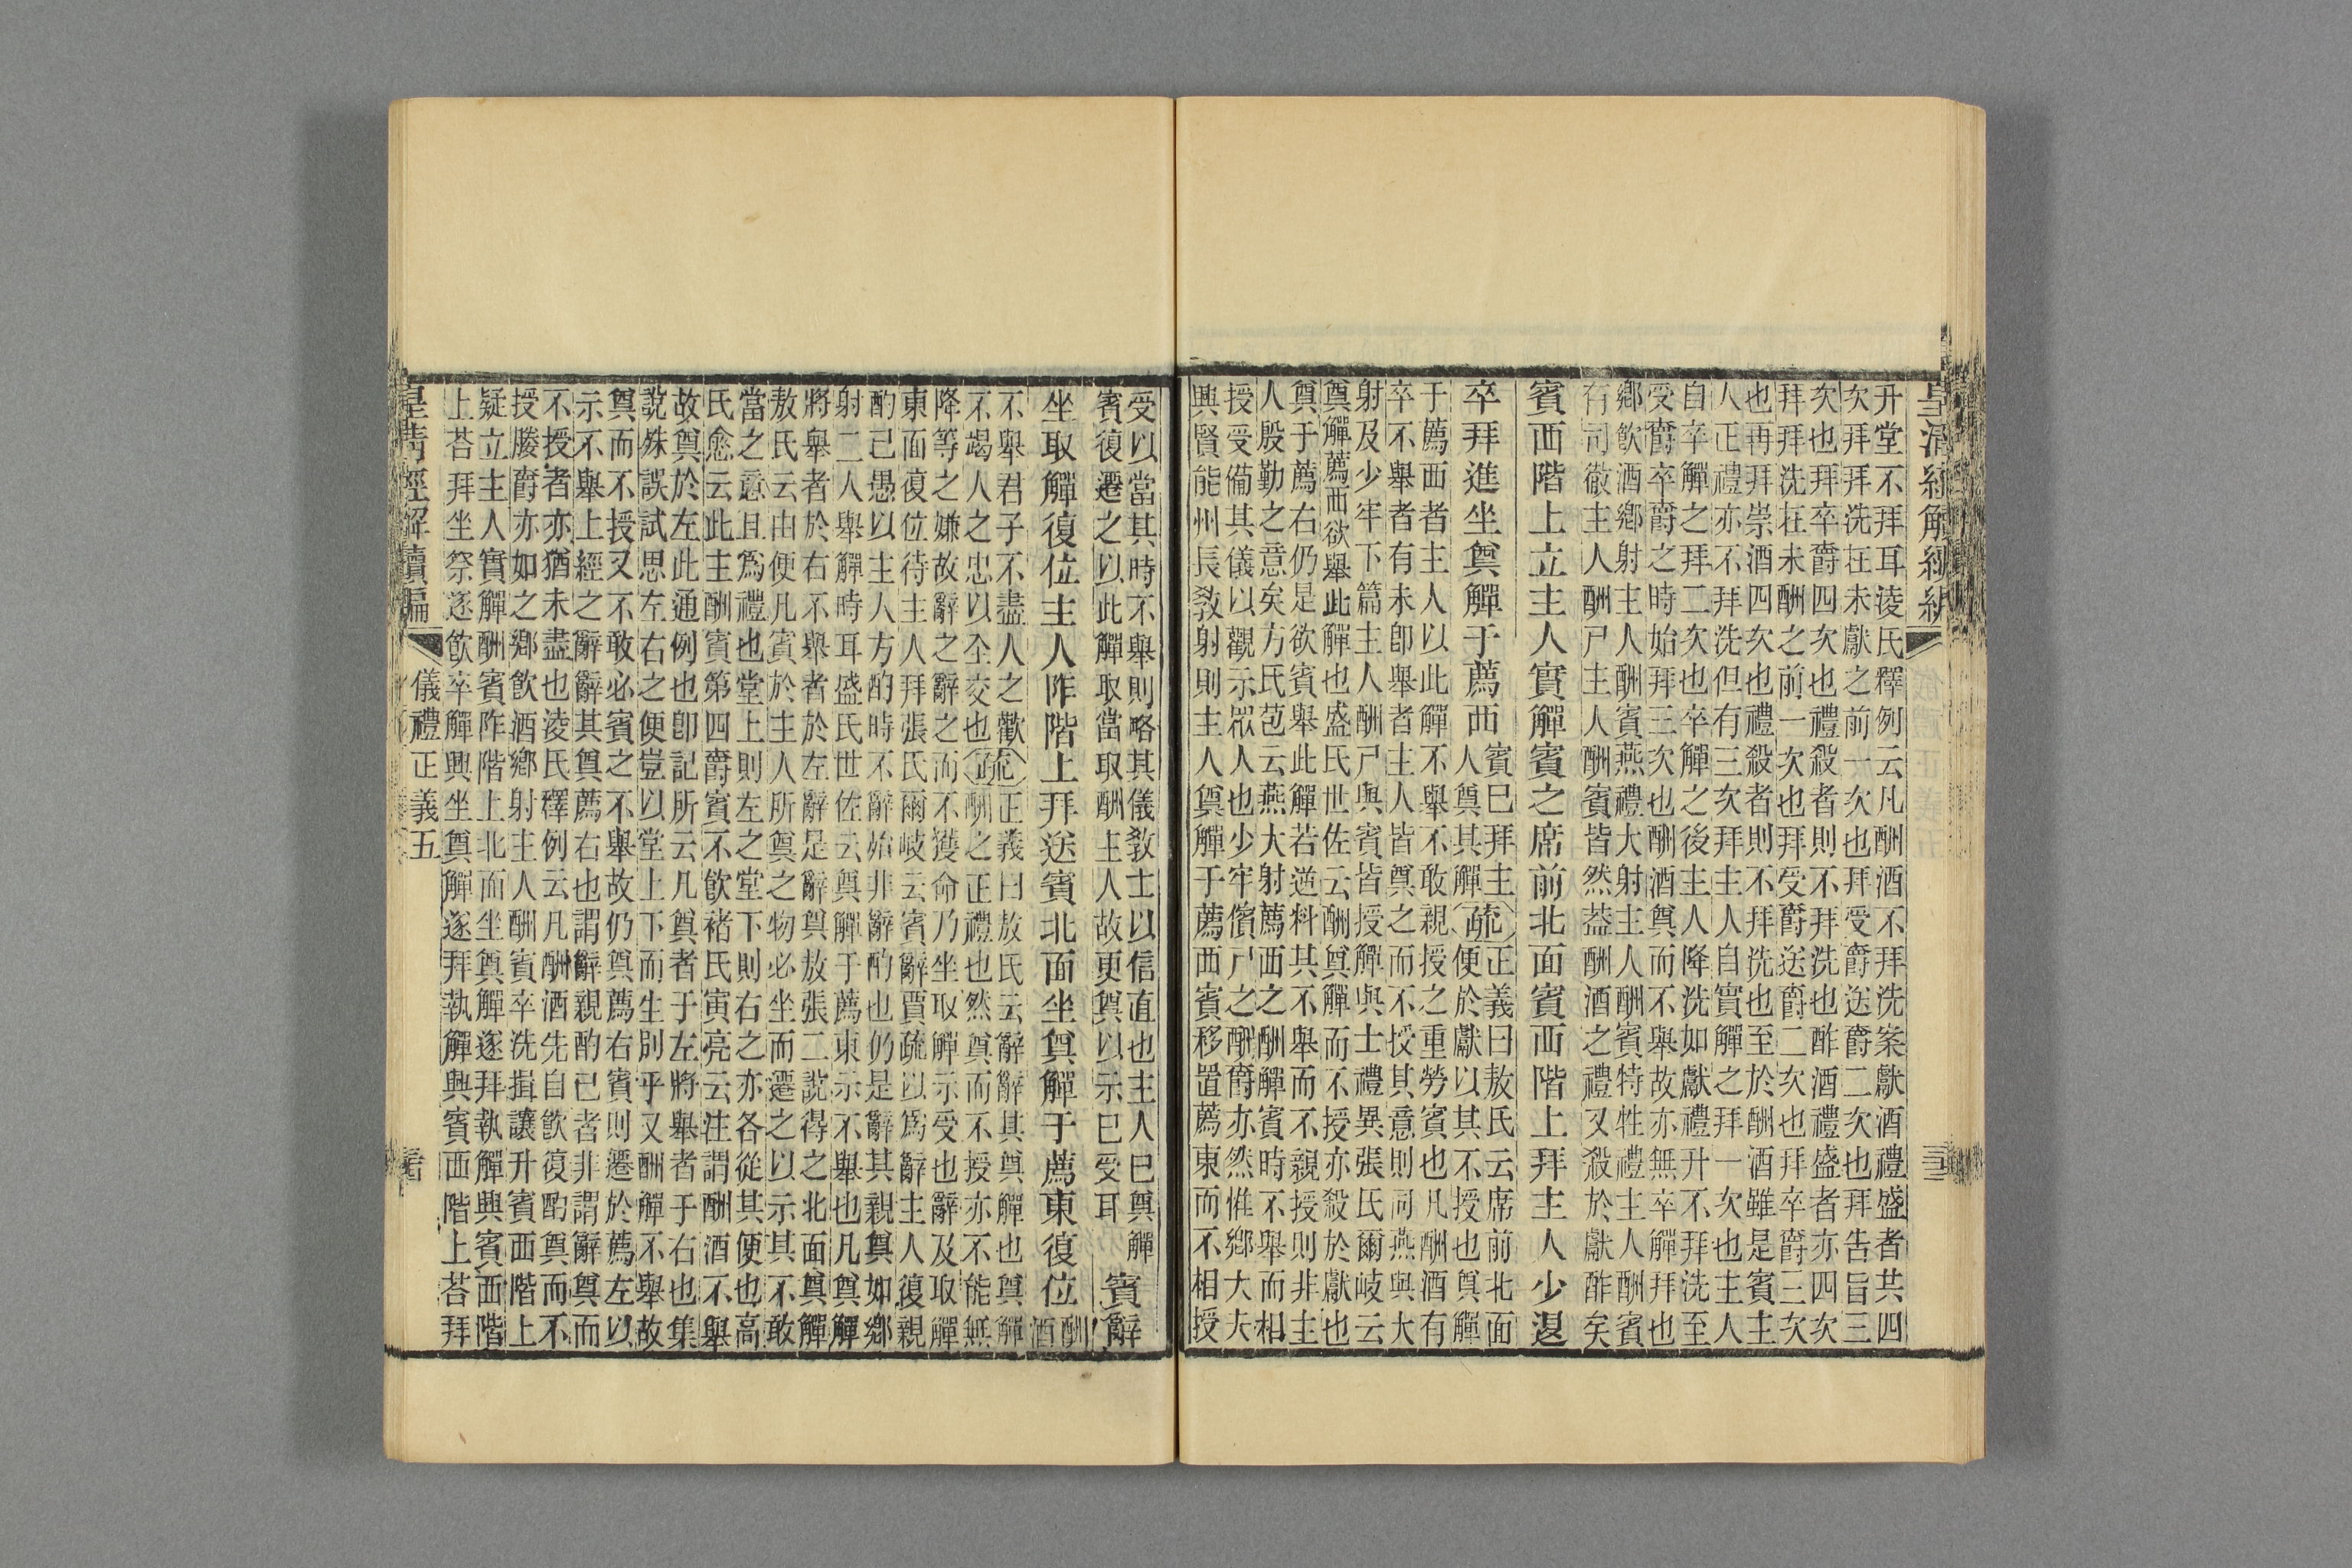 皇清經解續編
升堂不拜耳淩氏釋例云凡酬酒不拜洗案獻酒禮盛者共四
次拜拜洗在未獻之前一次也拜受爵送爵二次也拜告旨三
次也拜卒爵四次也禮殺者則不拜洗也酢酒禮盛者亦四次
拜拜洗在未酬之前一次也拜受爵送爵二次也拜卒爵三次
也再拜崇酒四次也禮殺者則不拜洗也至於酬酒雖是賓主
人正禮亦不拜洗但有三次拜主人自實觶之拜一次也主人
自卒觶之拜二次也卒觶之後主人降洗如獻禮升不拜洗至
受爵卒爵之時始拜三次也酬酒奠而不舉故亦無卒觶拜也
鄉飲酒鄉射主人酬賓燕禮大射主人酬賓特牲禮主人酬賓
有司徹主人酬尸主人酬賓皆然蓋酬酒之禮又殺於獻酢矣
賓西階上立主人實觶賓之席前北面賓西階上拜主人少退
卒拜進坐奠觶于薦西
賓已拜主
人奠其觶
疏
正義曰敖氏云席前北面
便於獻以其不授也奠觶
于薦西者主人以此觶不舉不敢親授之重勞賓也凡酬酒有
卒不舉者有未卽舉者主人皆奠之而不授其意則同燕與大
射及少牢下篇主人酬尸與賓皆授觶與士禮異張氏爾岐云
奠觶薦西欲舉此觶也盛氏世佐云酬奠觶而不授亦殺於獻也
奠于薦右仍是欲賓舉此觶若逆料其不舉而不親授則非主
人殷勤之意矣方氏苞云燕大射薦西之酬觶賓時不舉而相
授受備其儀以觀示眾人也少牢儐尸之酬爵亦然惟鄉大夫
興賢能州長敎射則主人奠觶于薦西賓移置薦東而不相授
受以當其時不舉則略其儀敎士以信直也主人已奠觶
賓復遷之以此觶取當取酬主人故更奠以示已受耳
賓辭
坐取觶復位主人阼階上拜送賓北面坐奠觶于薦東復位
酬
酒
不舉君子不盡人之歡
不竭人之忠以全交也
疏
正義曰敖氏云辭辭其奠觶也奠觶
酬之正禮也然奠而不授亦不能無
降等之嫌故辭之辭之而不獲命乃坐取觶示受也辭及取觶
東面復位待主人拜張氏爾岐云賓辭賈疏以爲辭主人復親
酌己愚以主人方酌時不辭始非辭酌也仍是辭其親奠如鄉
射二人舉觶時耳盛氏世佐云奠觶于薦東示不舉也凡奠觶
將舉者於右不舉者於左辭是辭奠敖張二說得之北面奠觶
敖氏云由便凡賓於主人所奠之物必坐而遷之以示其不敢
當之意且爲禮也堂上則左之堂下則右之亦各從其便也高
氏愈云此主酬賓第四爵賓不飲褚氏寅亮云注謂酬酒不舉
故奠於左此通例也卽記所云凡奠者于左將舉者于右也集
說殊誤試思左右之便豈以堂上下而生別乎又酬觶不舉故
奠而不授又不敢必賓之不舉故仍奠薦右賓則遷於薦左以
示不舉上經之辭辭其奠薦右也謂辭親酌己者非謂辭奠而
不授者亦猶未盡也淩氏釋例云凡酬酒先自飲復酌奠而不
授媵爵亦如之鄉飲酒鄉射主人酬賓卒洗揖讓升賓西階上
疑立主人實觶酬賓阼階上北面坐奠觶遂拜執觶興賓西階
上荅拜坐祭遂飲卒觶興坐奠觶遂拜執觶興賓西階上荅拜
皇清經解續編
儀禮正義五